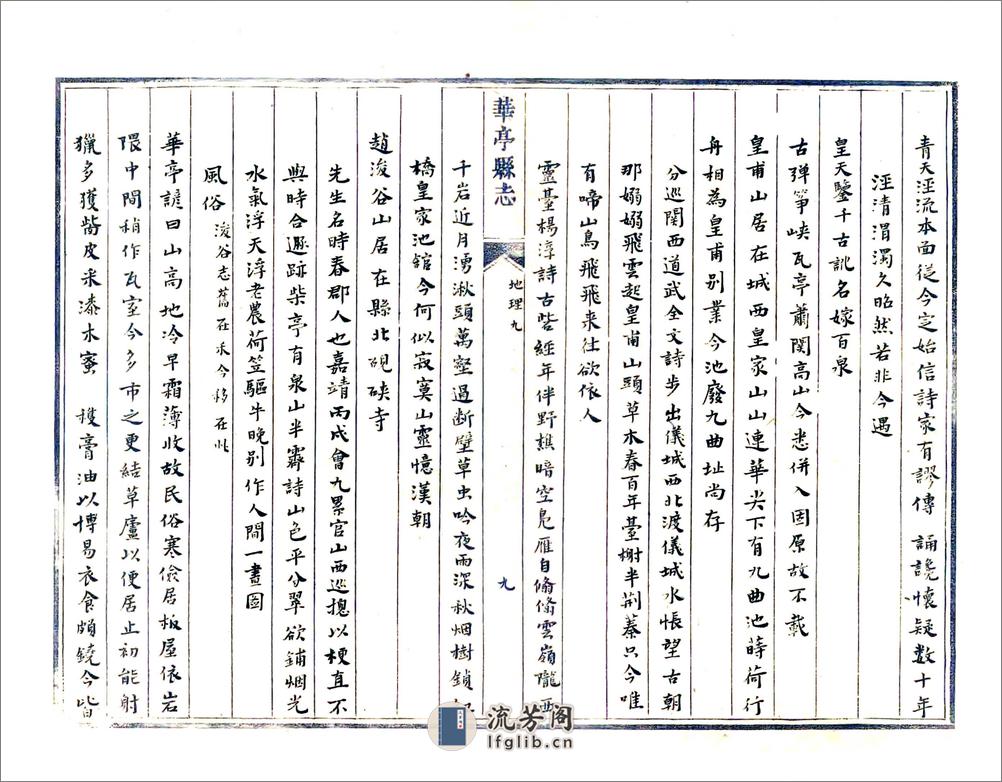 青天涇流本面從今定始信詩家有謬傳　誦讒懷疑数十年
涇清渭濁久昭然若非今遇
皇天鑒千古訛名嫁百泉
古彈箏峽瓦亭蕭関高山今悉併入固原故不載
皇甫山居在城西皇家山山連華尖下有九曲池蒔荷行
舟相為皇甫别業今池廢九曲址尚存
分巡関西道武全文詩步出儀城西北渡儀城水悵望古朝
那嫋嫋飛雲起皇甫山頭草木春百年臺榭半荆蓁只今唯
有啼山鳥飛飛来往欲依人
靈臺楊淳詩古砦經年伴野樵暗空凫雁自翛翛雲嶺隴西
千岩近月湧湫頭萬壑過断壁草虫吟夜雨深秋烟樹鎖
橋皇家池舘今何似寂寞山靈憶漢朝
趙浚谷山居在縣北硯硤寺
先生名時春郡人也嘉靖丙戌會九累官山西巡摠以梗直不
與時合遯跡柴亭有泉山半霽詩山色平分翠欲鋪烟光
水氣浮天浮老農荷笠驅牛晚别作人間一畫圖
風俗　浚谷志舊在禾今移在此
華亭諺曰山高地冷早霜薄收故民俗寒儉居板屋依岩
隈中間稍作瓦室今多市之更結草廬以便居止初能射
獵多獲觜皮采漆木蜜　穫膏油以博易衣食頗饒今皆
華亭縣志
地理九
九
流芳阁
lfglib.cn